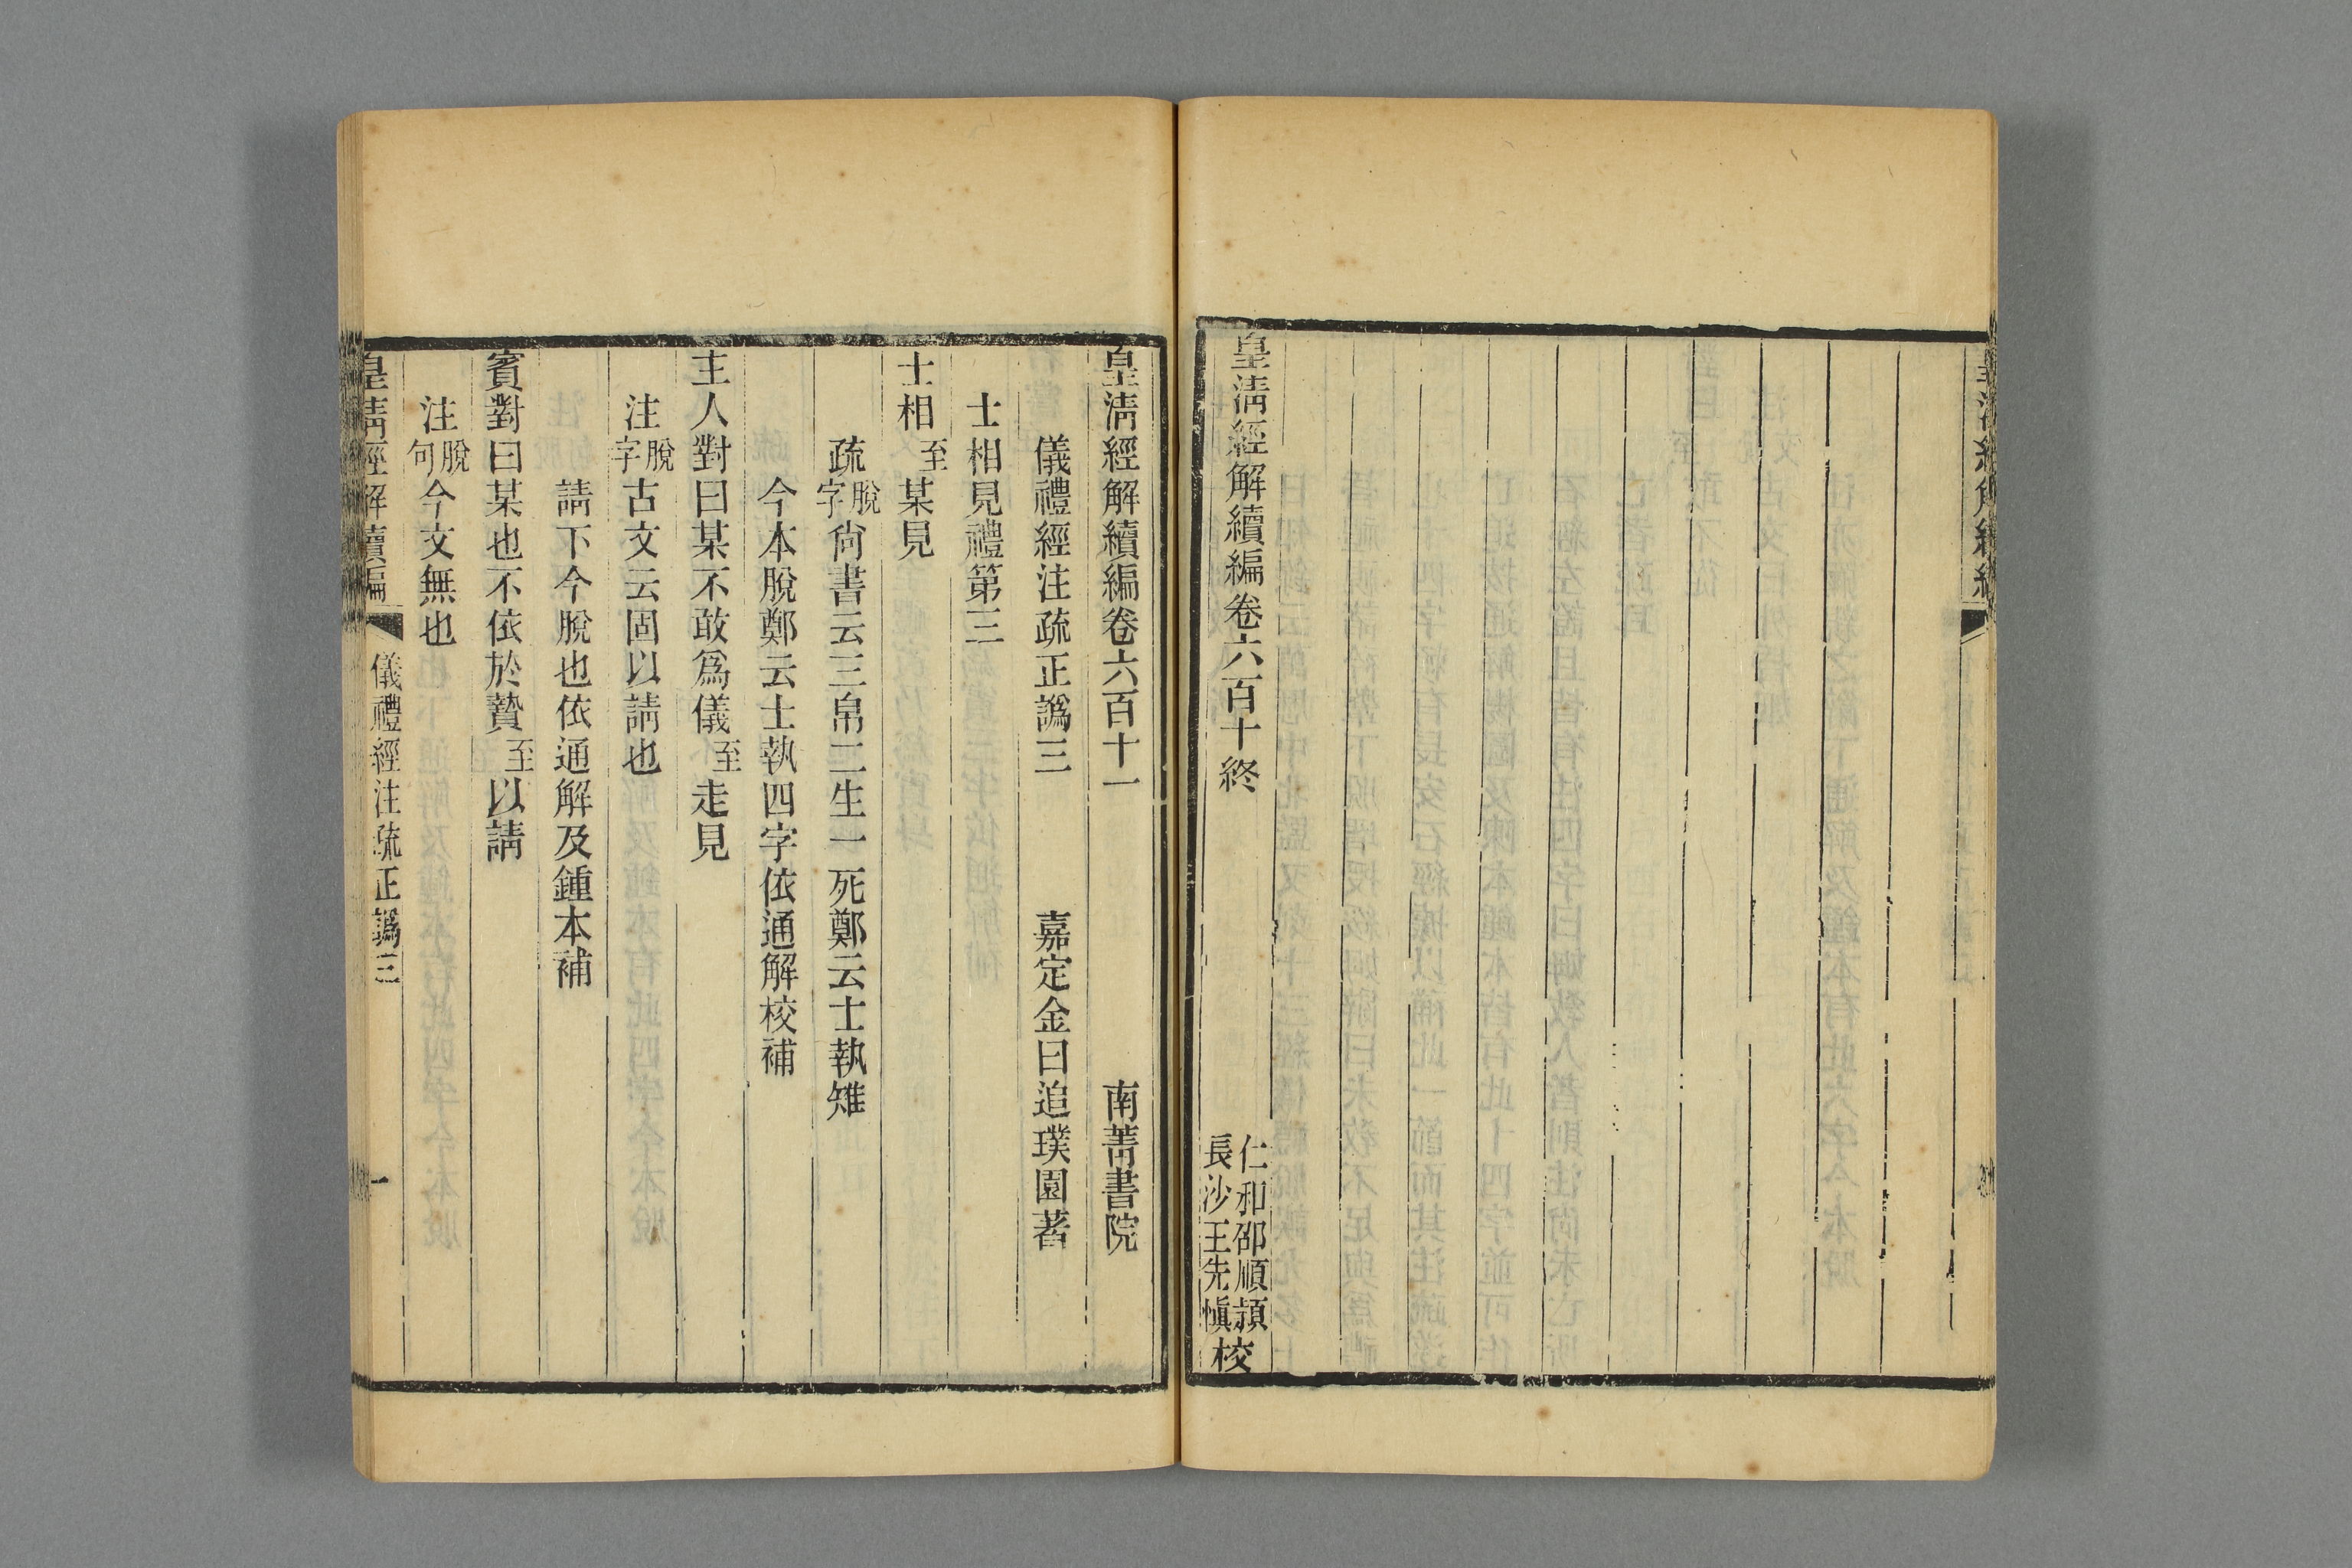 皇清經解續編
皇清經解續編卷六百十終
仁和邵順頴
長沙王先愼
校
皇清經解續編卷六百十一 南菁書院
儀禮經注疏正譌三 嘉定金曰追璞園著
士相見禮第三
士相至某見
疏脫字尙書云三帛二生一死鄭云士執雉
今本脫鄭云士執四字依通解校補
主人對曰某不敢爲儀至走見
注脫字古文云固以請也
請下今脫也依通解及鍾本補
賓對曰某也不依於贄至以請
注脫句今文無也
皇清經解續編 儀禮經注疏正譌三 一